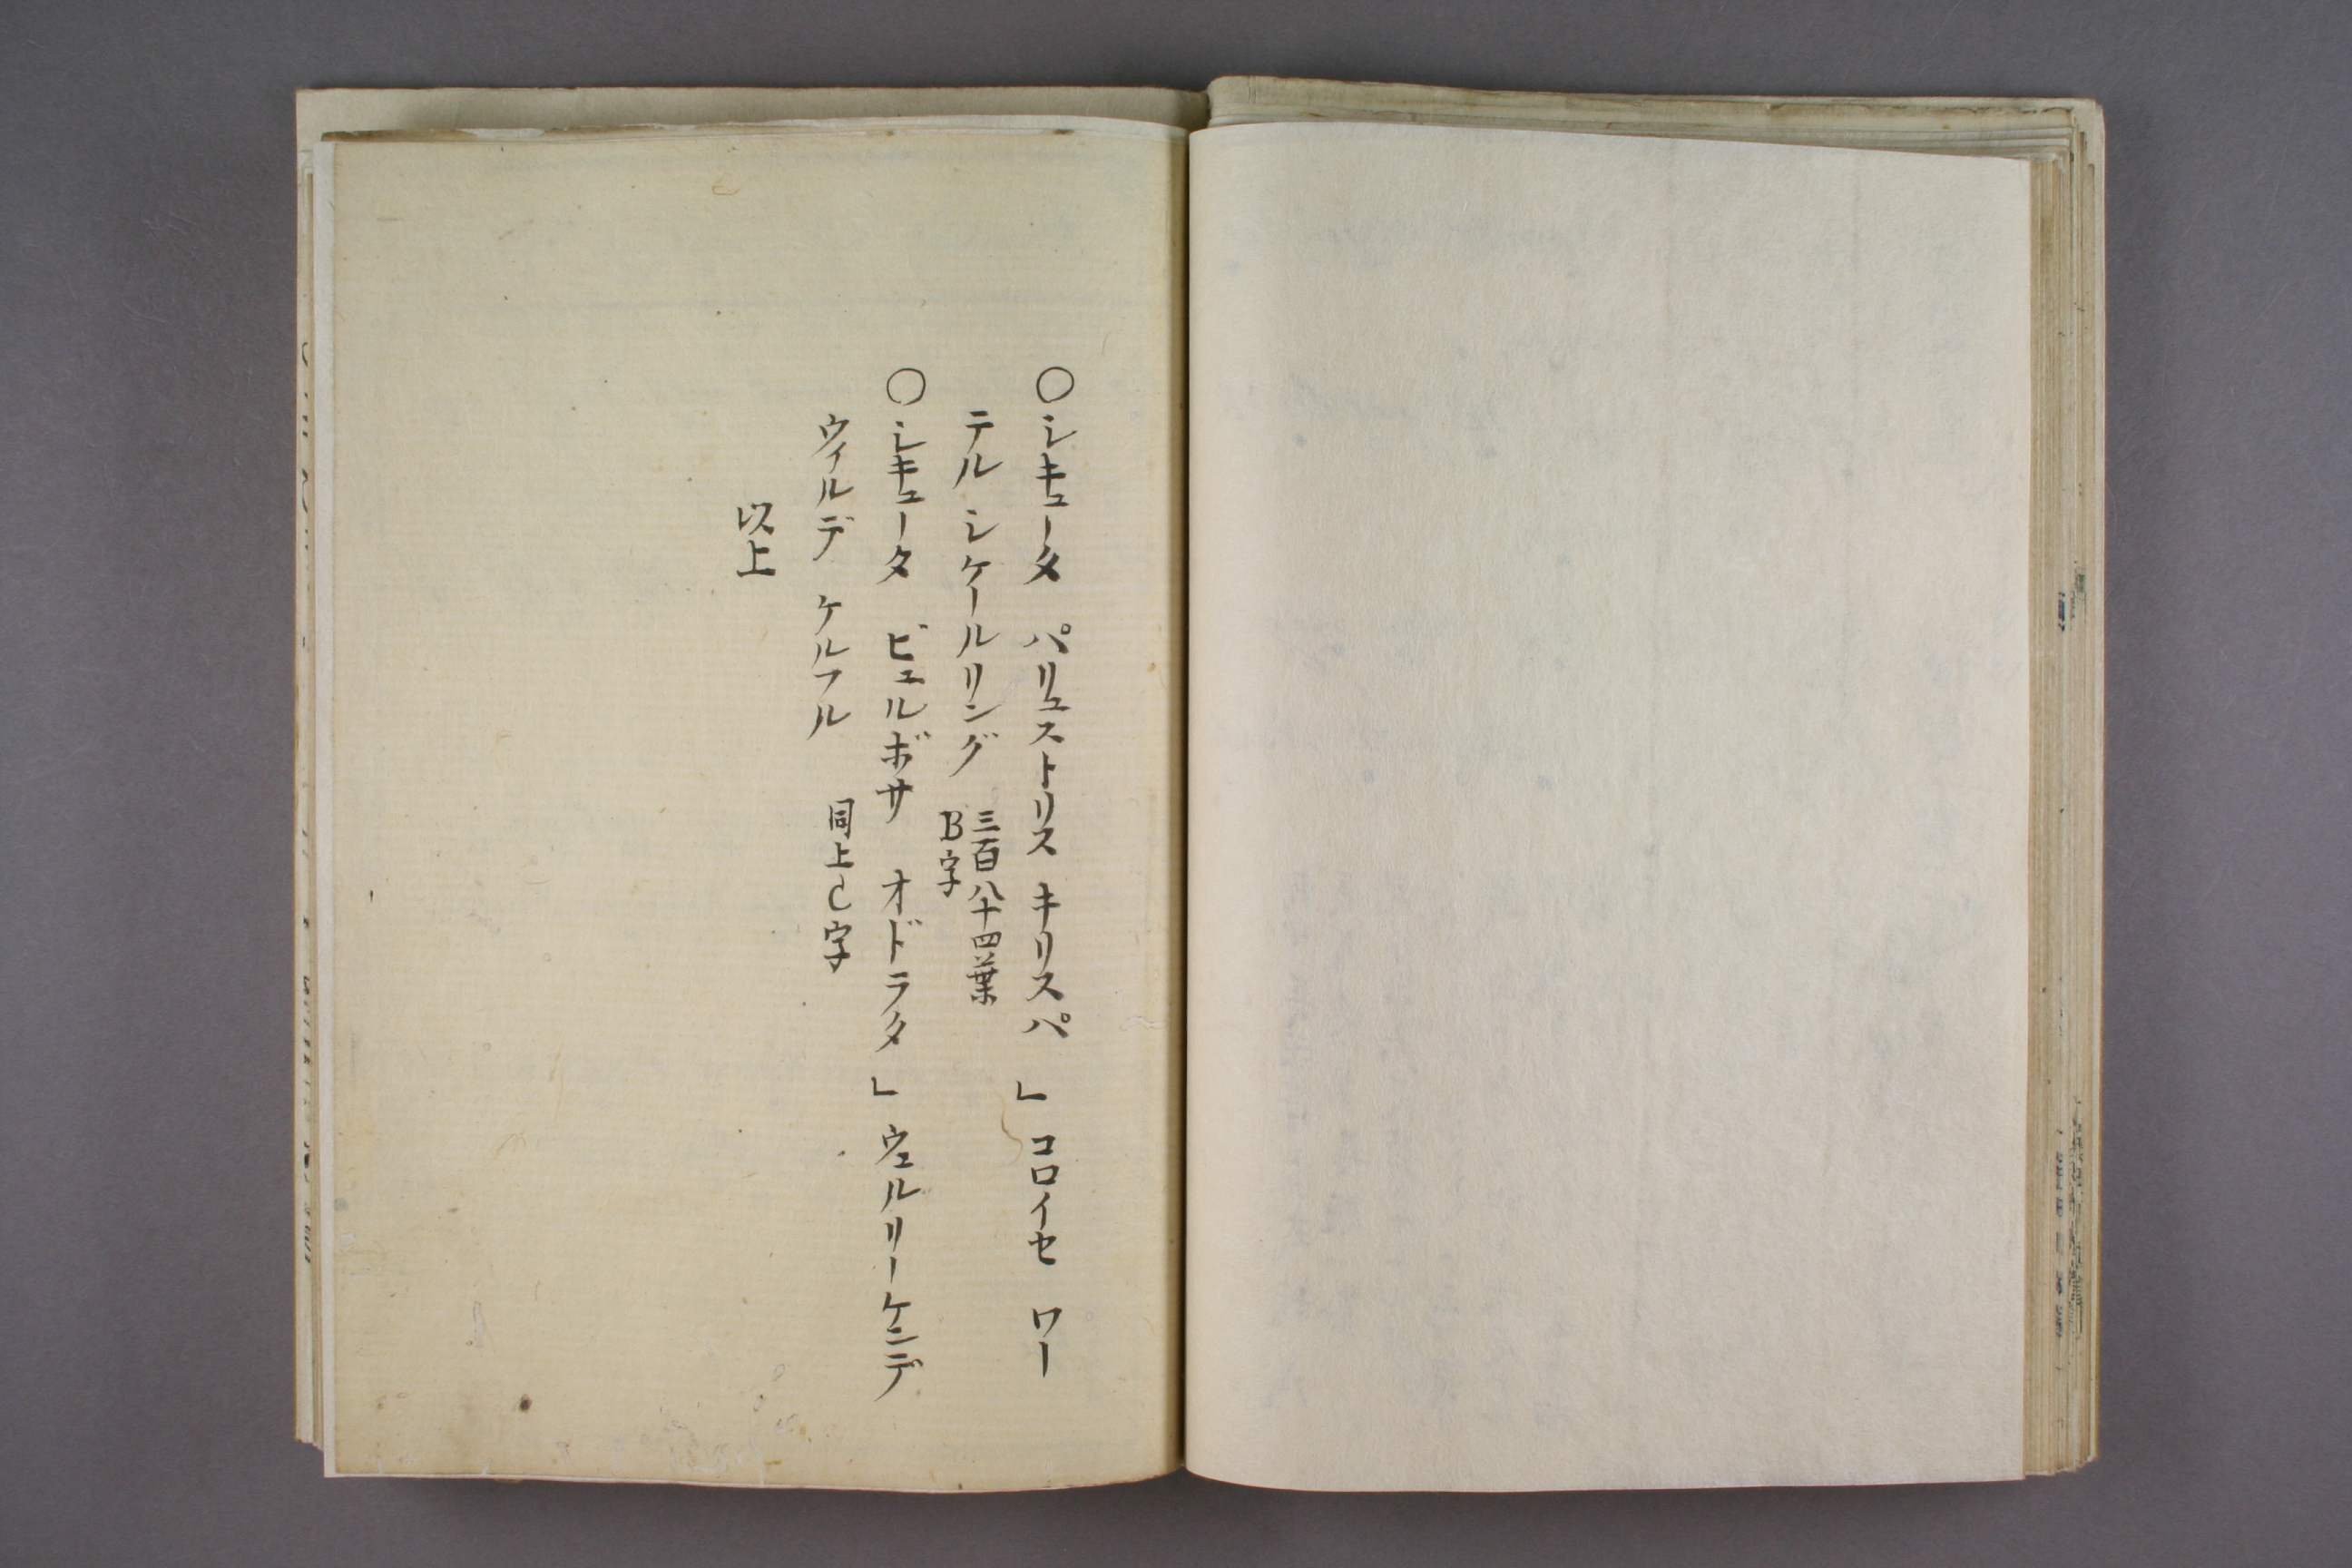 〇シキュータ パリュストリス キリスパ 」 コロイセ ワー
テル シケールリング 三百八十四葉
B字
〇シキュータ ビュルボサ オドラタ 」 ウェルリーケンデ
ウィルデ ケルフル 同上C字
以上